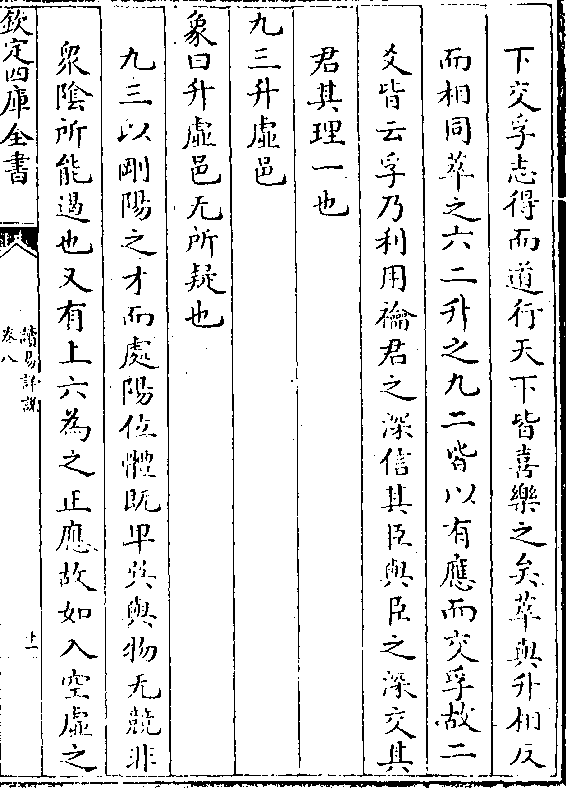 下交孚志得而道行天下皆喜樂之矣萃與升相反
而相同萃之六二升之九二皆以有應而交孚故二
爻皆云孚乃利用禴君之深信其臣與臣之深交其
君其理一也
九三升虛邑
象曰升虛邑无所疑也
九三以剛陽之才而處陽位體既卑巽與物无競非
衆陰所能遏也又有上六為之正應故如入空虛之
欽定四庫全書
讀易詳說
卷八